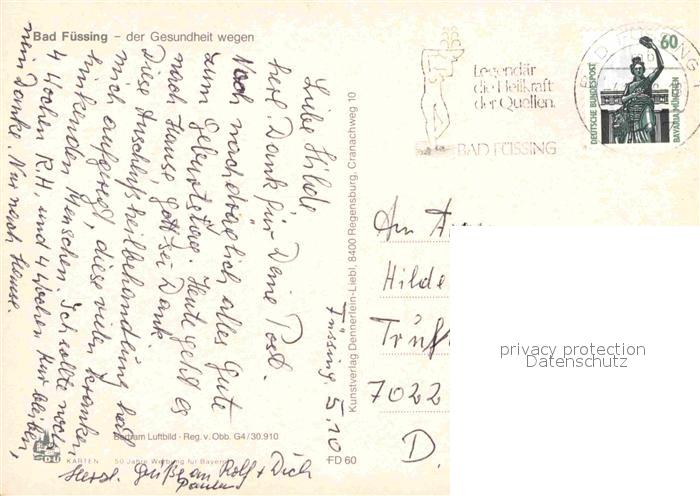 Bad Füssing – der Gesundheit wegen
Liebe Hilde
herzl. Dank für Deine Post.
Noch nachträglich alles Gute
zum Geburtstag. Heute geht es
nach Hause, gott sei Dank.
Diese Anschlußheilbehandlung hat
mich aufgeregt, diese vielen kranken,
hinkenden Menschen. Ich sollte noch
4 Wochen R.H. und 4 Wochen Kur bleiben,
nein Danke. Nur nach Hause.
Herzl. Grüße an Rolf + Dich
Füssing 5.10
Bertram Luftbild · Reg. v. Obb. G4/30.910
KARTEN 50 Jahre Werbung für Bayern
FD 60
Kunstverlag Dennerlein-Liebl. 8400 Regensburg, Cranachweg 10
Legendär
die Heilkraft
der Quellen.
BAD FÜSSING
BAD FÜSSING 1
60
DEUTSCHE BUNDESPOST
BAVARIA MÜNCHEN
An
Hilde
Trüf
7022
D.
privacy protection
Datenschutz